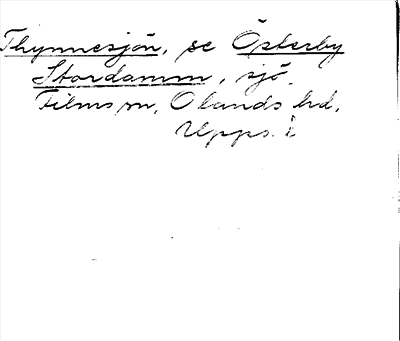 Thynnesjön, se Österby
Stordamm, sjö.
Films sn, Olands hd,
Upps. l